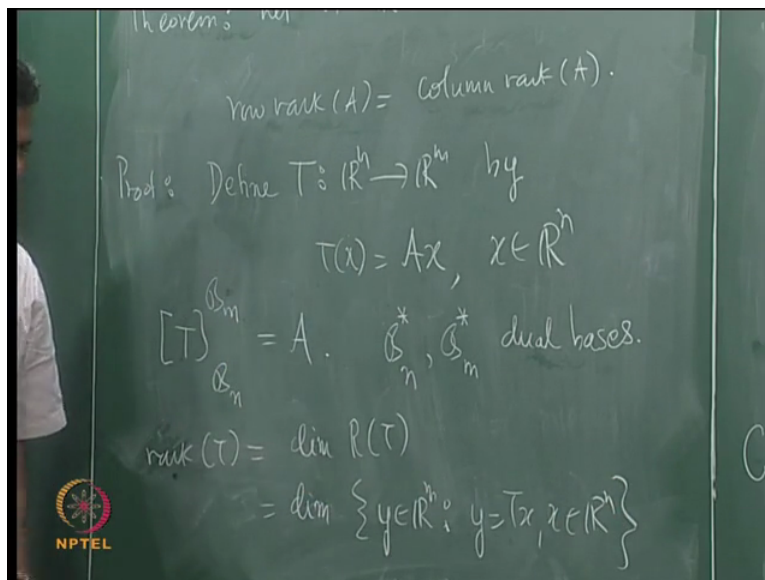 Theorem: Let
row rank (A) = column rank (A).
Proof: Define T: ℝⁿ → ℝᵐ by
T(x) = Ax, x ∈ ℝⁿ
[T]_{ℬₙ}^{ℬₘ} = A. ℬₙ*, ℬₘ* dual bases.
rank (T) = dim R(T)
= dim {y ∈ ℝᵐ: y = Tx, x ∈ ℝⁿ}
C
NPTEL